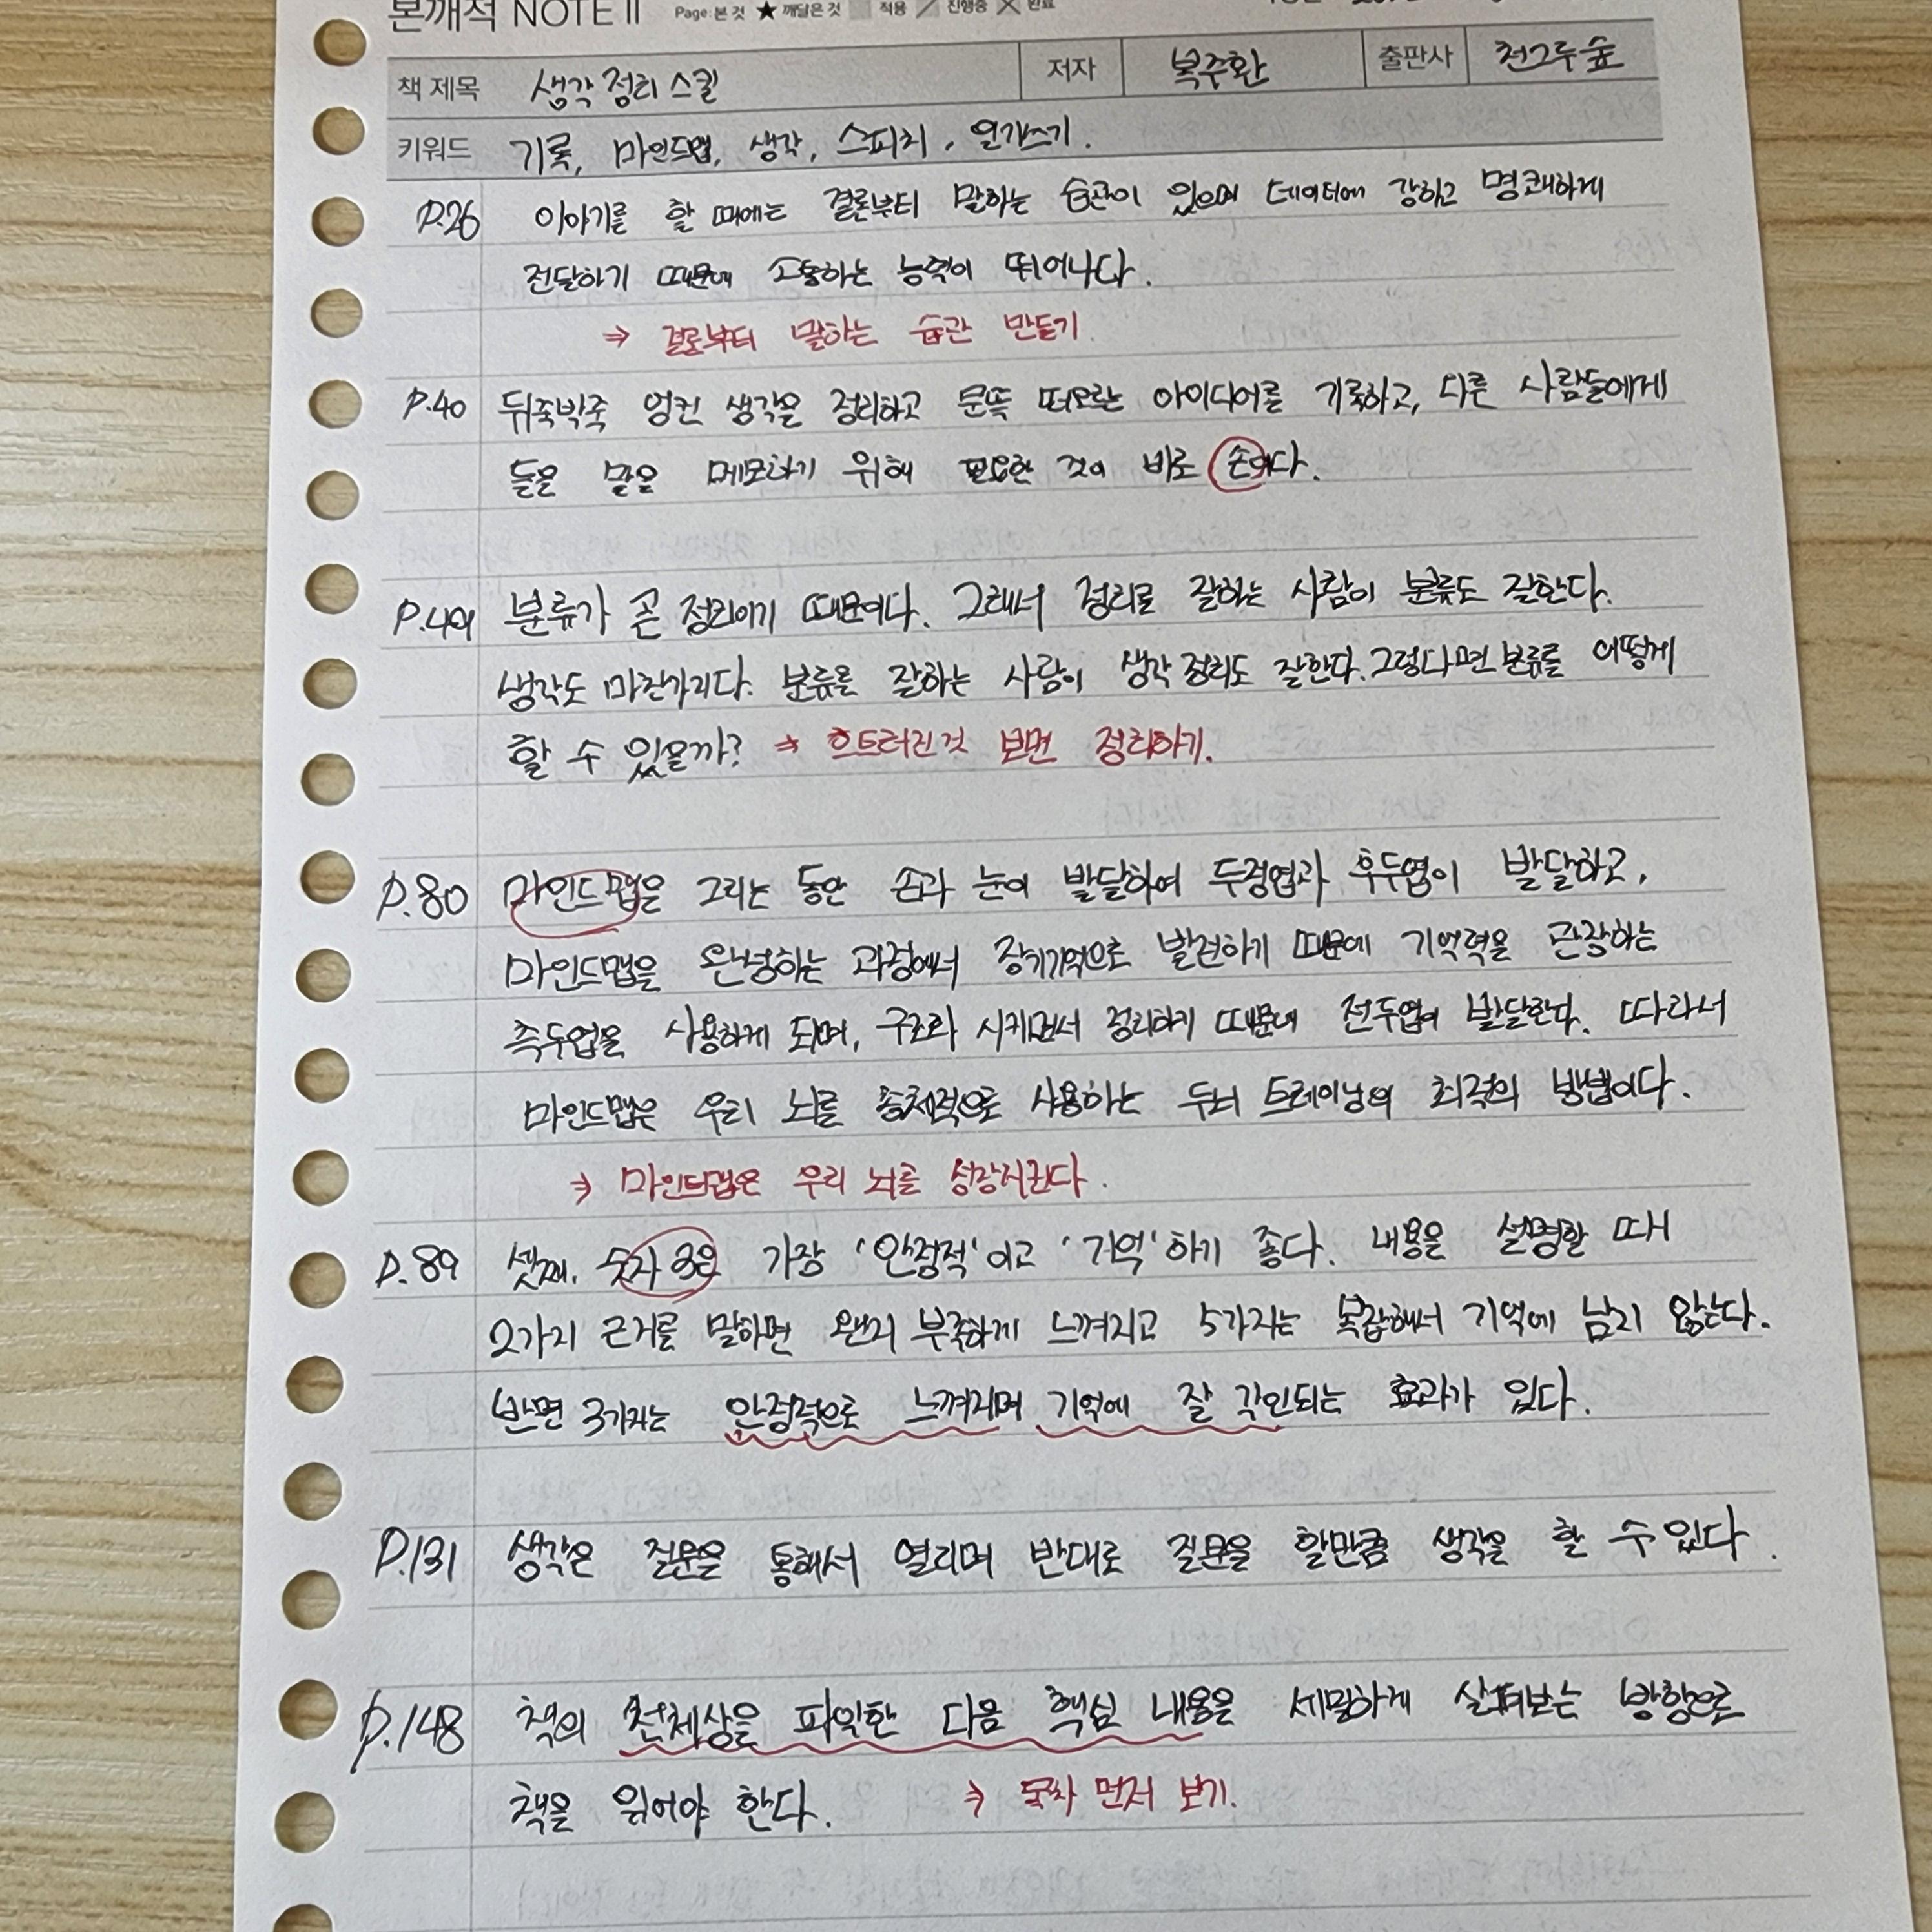 본깨적 NOTE II Page: 본 것 ★ 깨달은 것 적용 진행중 완료
책 제목 생각정리스킬 저자 복주환 출판사 천그루숲
키워드 기록, 마인드맵, 생각, 스피치, 일기쓰기.
P.26 이야기를 할 때에는 결론부터 말하는 습관이 있으며 데이터에 강하고 명쾌하게
전달하기 때문에 소통하는 능력이 뛰어나다.
⇒ 결론부터 말하는 습관 만들기.
P.40 뒤죽박죽 엉킨 생각을 정리하고 문뜩 떠오르는 아이디어를 기록하고, 다른 사람들에게
들은 말을 메모하기 위해 필요한 것이 바로 손이다.
P.49 분류가 곧 정리이기 때문이다. 그래서 정리를 잘하는 사람이 분류도 잘한다.
생각도 마찬가지다. 분류를 잘하는 사람이 생각정리도 잘한다. 그렇다면 분류를 어떻게
할 수 있을까? ⇒ 흐트러진것 보면 정리하기.
P.80 마인드맵을 그리는 동안 손과 눈이 발달하여 두정엽과 후두엽이 발달하고,
마인드맵을 완성하는 과정에서 장기기억으로 발전하기 때문에 기억력을 관장하는
측두엽을 사용하게 되며, 구조화 시키면서 정리하기 때문에 전두엽이 발달한다. 따라서
마인드맵은 우리 뇌를 총체적으로 사용하는 두뇌 트레이닝의 최적의 방법이다.
⇒ 마인드맵은 우리 뇌를 성장시킨다.
P.89 셋째, 숫자 3은 가장 '안정적'이고 '기억'하기 좋다. 내용을 설명할 때
2가지 근거를 말하면 왠지 부족하게 느껴지고 5가지는 복잡해서 기억에 남지 않는다.
반면 3가지는 안정적으로 느껴지며 기억에 잘 각인되는 효과가 있다.
P.131 생각은 질문을 통해서 열리며 반대로 질문을 할만큼 생각을 할 수 있다.
P.148 책의 전체상을 파악한 다음 핵심 내용을 세밀하게 살펴보는 방향으로
책을 읽어야 한다. ⇒ 목차 먼저 보기.